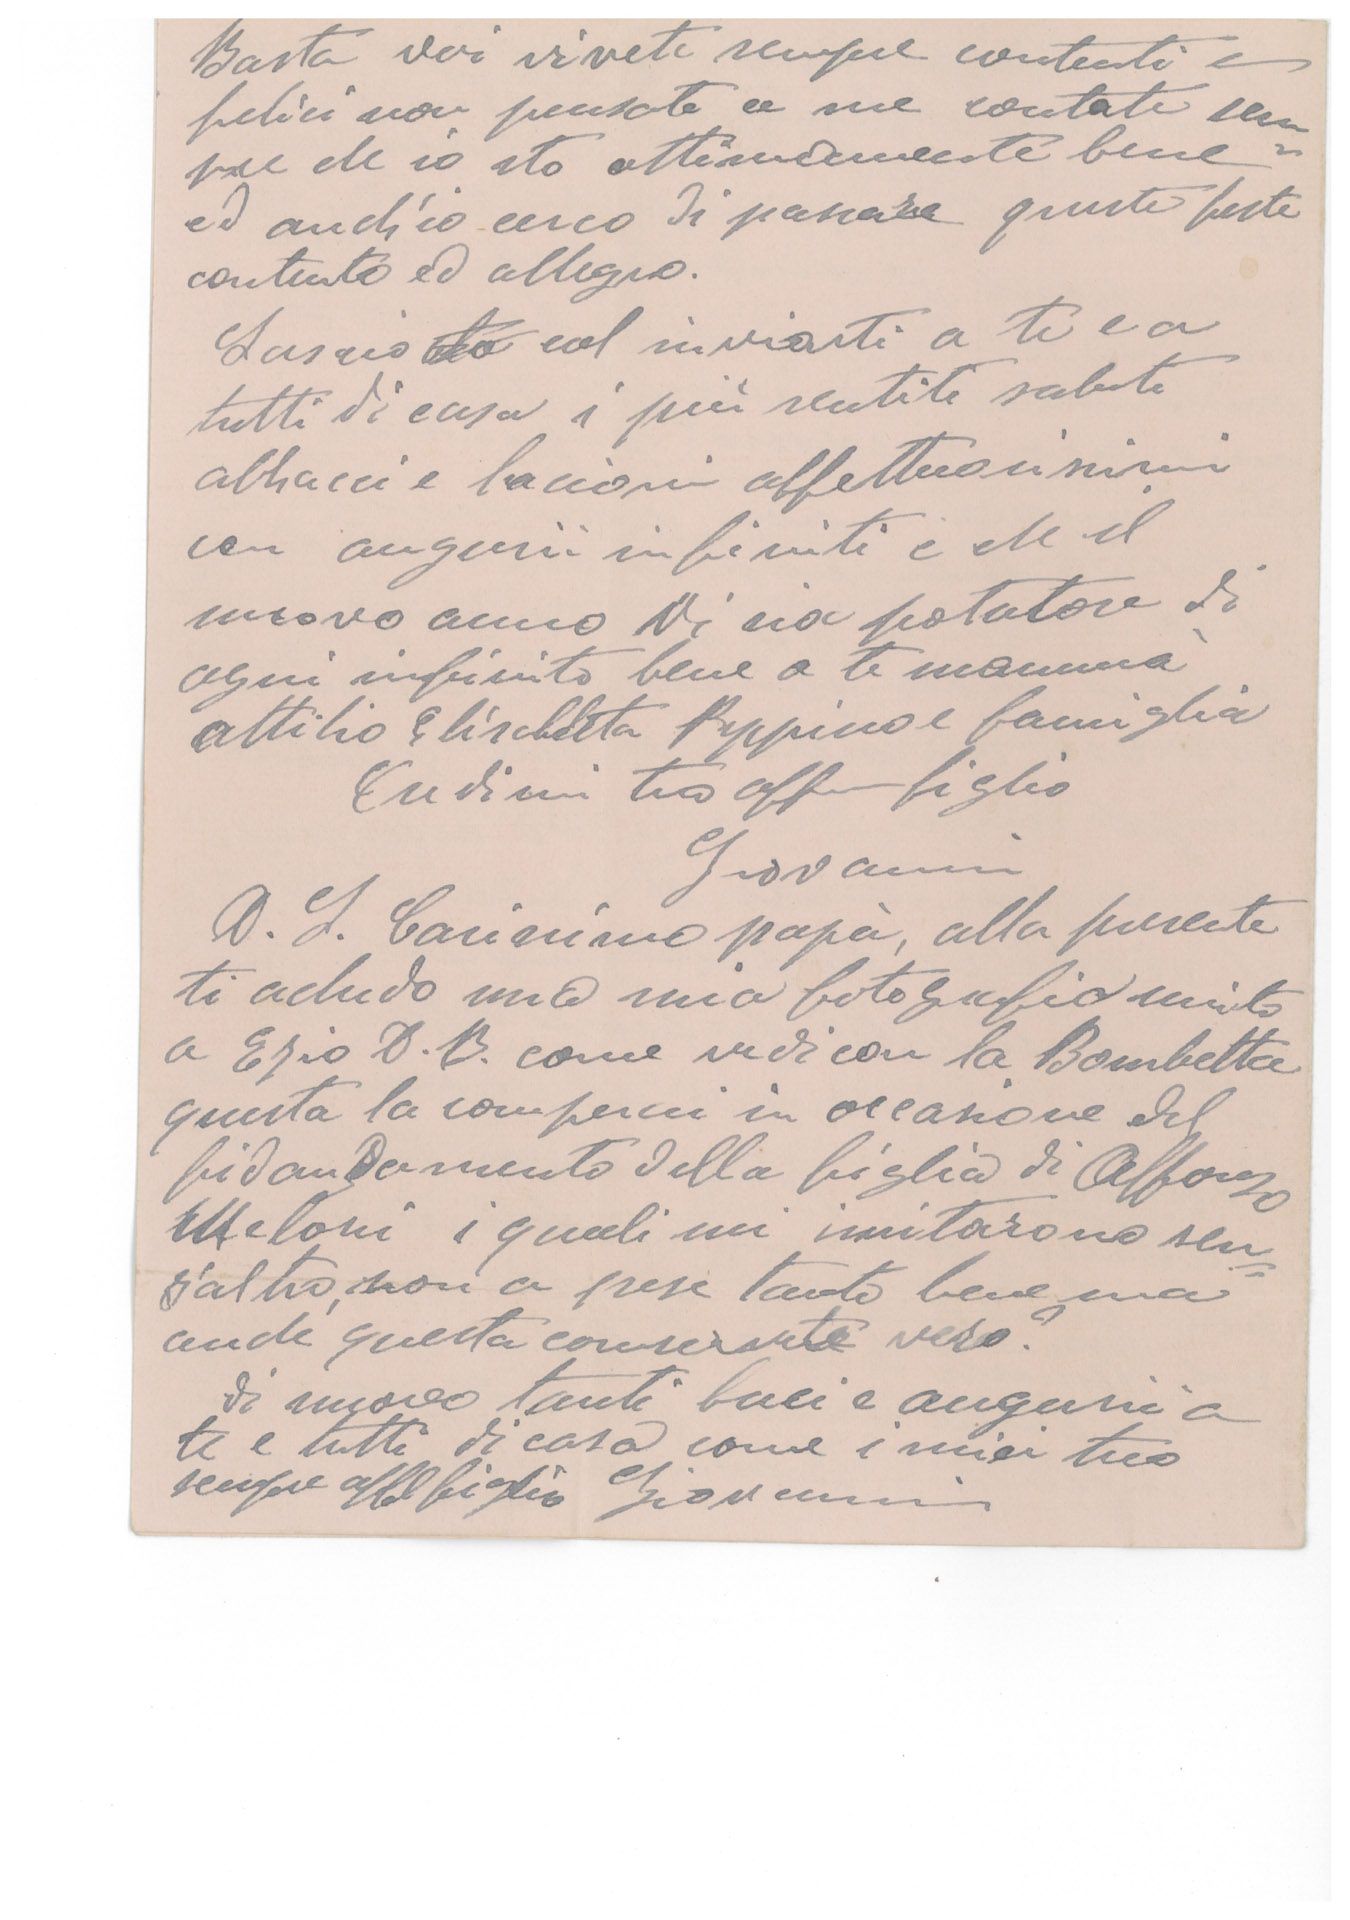 Basta voi vivete sempre contenti e
felici non pensate a me contate sem
pre che io sto ottimamente bene
ed anch'io cerco di passare queste feste
contento ed allegro.
Lascio col inviarti a te e a
tutti di casa i più sentiti salute
abbracci e bacioni affettuosissimi
con augurii infiniti e che il
nuovo anno Vi sia potatore di
ogni infinito bene a te mammà
Attilio Elisabetta Peppino e famiglia
Credimi tuo aff figlio
Giovanni
P. S. Carissimo papà, alla presente
ti acludo una mia fotografia unito
a Ezio D. B. come vedi con la Bombetta
questa la comperai in occasione del
fidanzamento della figlia di Alfonzo
Meloni i quali mi invitarono sen
z'altro, non a pose tanto bene ma
anche questa conservate vero?
Di nuovo tanti baci e augurii a
te e tutti di casa come i miei tuo
sempre aff figlio Giovanni